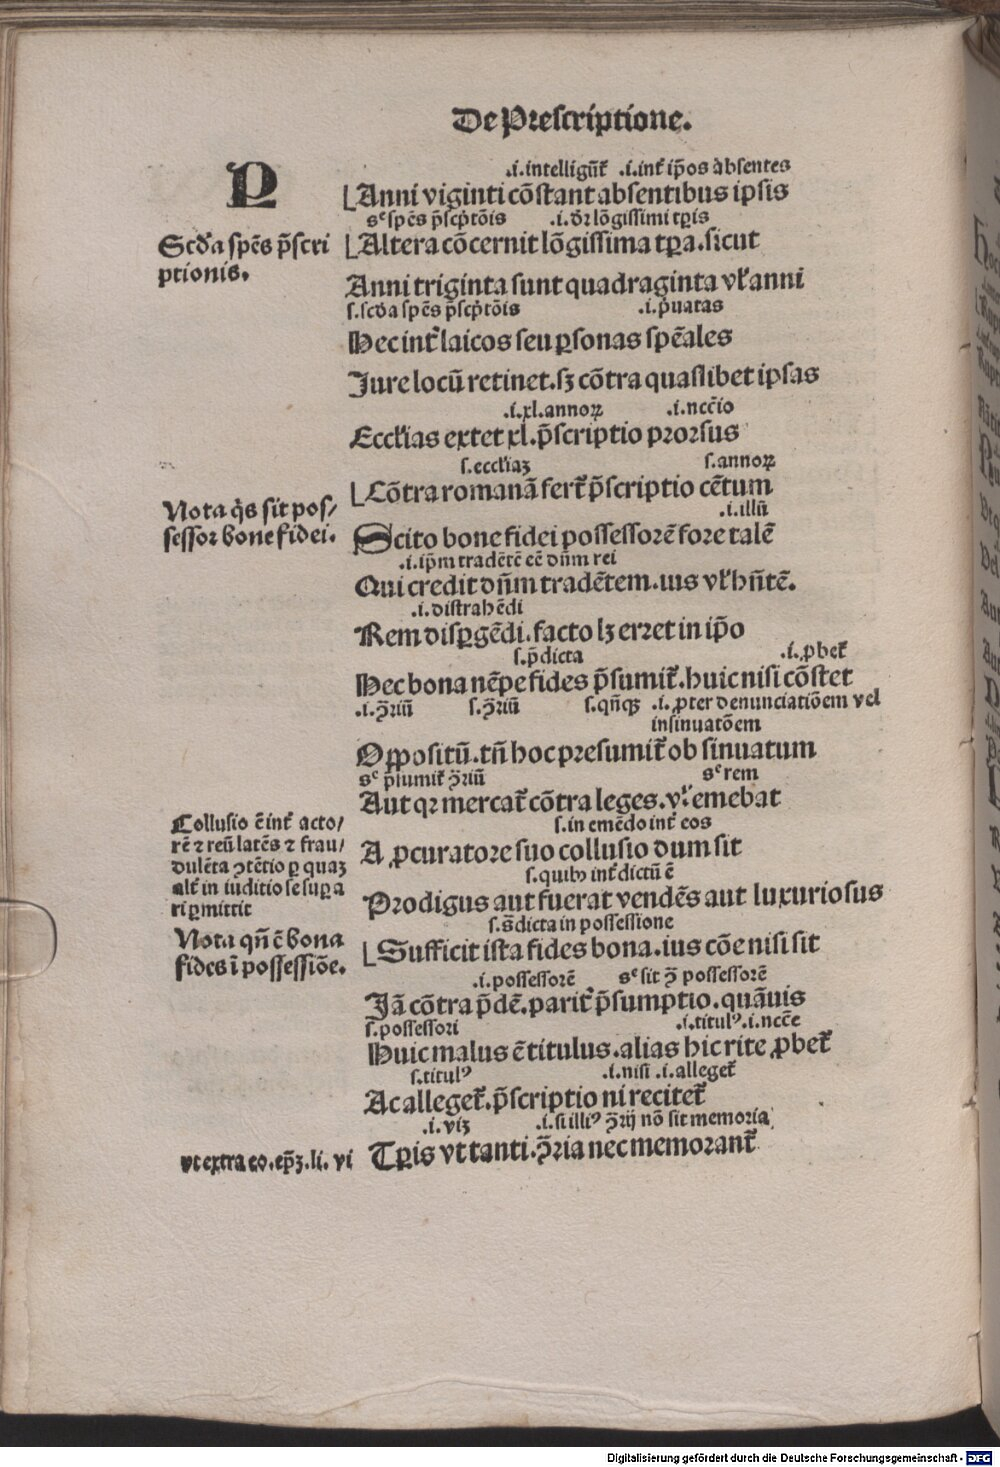 De Prescriptione.
P
.i.intelligūt̄ .i.int̄ ip̄os absentes
Anni viginti cōstant absentibus ipsis
sᶜ spēs p̄scp̄tōis .i.dr̄ lōgissimi tꝑis
Scd'a spēs p̄scri
ptionis.
Altera cōcernit lōgissima tꝑa.sicut
Anni triginta sunt quadraginta vl' anni
s.scd'a spēs p̄scp̄tōis .i.p̄uatas
Hec int̄ laicos seu ꝑsonas spēales
Jure locū retinet.sꝫ cōtra quaslibet ipsas
.i.xl.annoꝝ .i.nccīo
Eccl'ias extet xl.p̄scriptio prorsus
s.eccl'iaꝫ s.annoꝝ
Cōtra romanā fert̄ p̄scriptio cētum
.i.illū
Nota q̄s sit pos/
sessor bone fidei.
Scito bone fidei possessorē fore talē
.i.ip̄m tradētē eē dn̄m rei
Qui credit dn̄m tradētem.ius vl' hn̄tē.
.i.distrahēdi
Rem disꝑgēdi.facto lꝫ erret in ip̄o
s.p̄dicta .i.ꝓbet̄
Hec bona nēpe fides p̄sumit̄.huic nisi cōstet
.i.ꝯ̄riū s.ꝯ̄riū s.qn̄qꝫ .i.ꝓpter denunciatiōem vel
insinuatōem
Oppositū.tn̄ hoc presumit̄ ob sinuatum
sᶜ p̄sumit̄ ꝯ̄riū sᶜ rem
Aut qꝛ mercat̄ cōtra leges.vl' emebat
s.in emēdo int̄ eos
Collusio ē int̄ acto/
rē ⁊ reū latēs ⁊ frau/
dulēta ꝯtētio ꝑ quaꝫ
alt̄ in iuditio se suꝑa
ri ꝑmittit
A ꝓcuratore suo collusio dum sit
s.quibꝰ int̄dictū ē
Prodigus aut fuerat vendēs aut luxuriosus
s.s̄dicta in possessione
Nota qn̄ ē bona
fides ī possessiōe.
Sufficit ista fides bona.ius cōe nisi sit
.i.possessorē sᶜ sit ꝯ̄ possessorē
Jā cōtra p̄dē.parit̄ p̄sumptio.quāuis
s.possessori .i.titulꝰ.i.nccē
Huic malus ē titulus.alias hic rite ꝓbet̄
s.titulꝰ .i.nisi .i.alleget̄
Ac alleget̄.p̄scriptio ni recitet̄
.i.viꝫ .i.si illiꝰ ꝯ̄rij nō sit memoria
vt extra eo.ep̄ꝫ.li.vi
Tꝑis vt tanti.ꝯ̄ria nec memorant̄
Digitalisierung gefördert durch die Deutsche Forschungsgemeinschaft - DFG